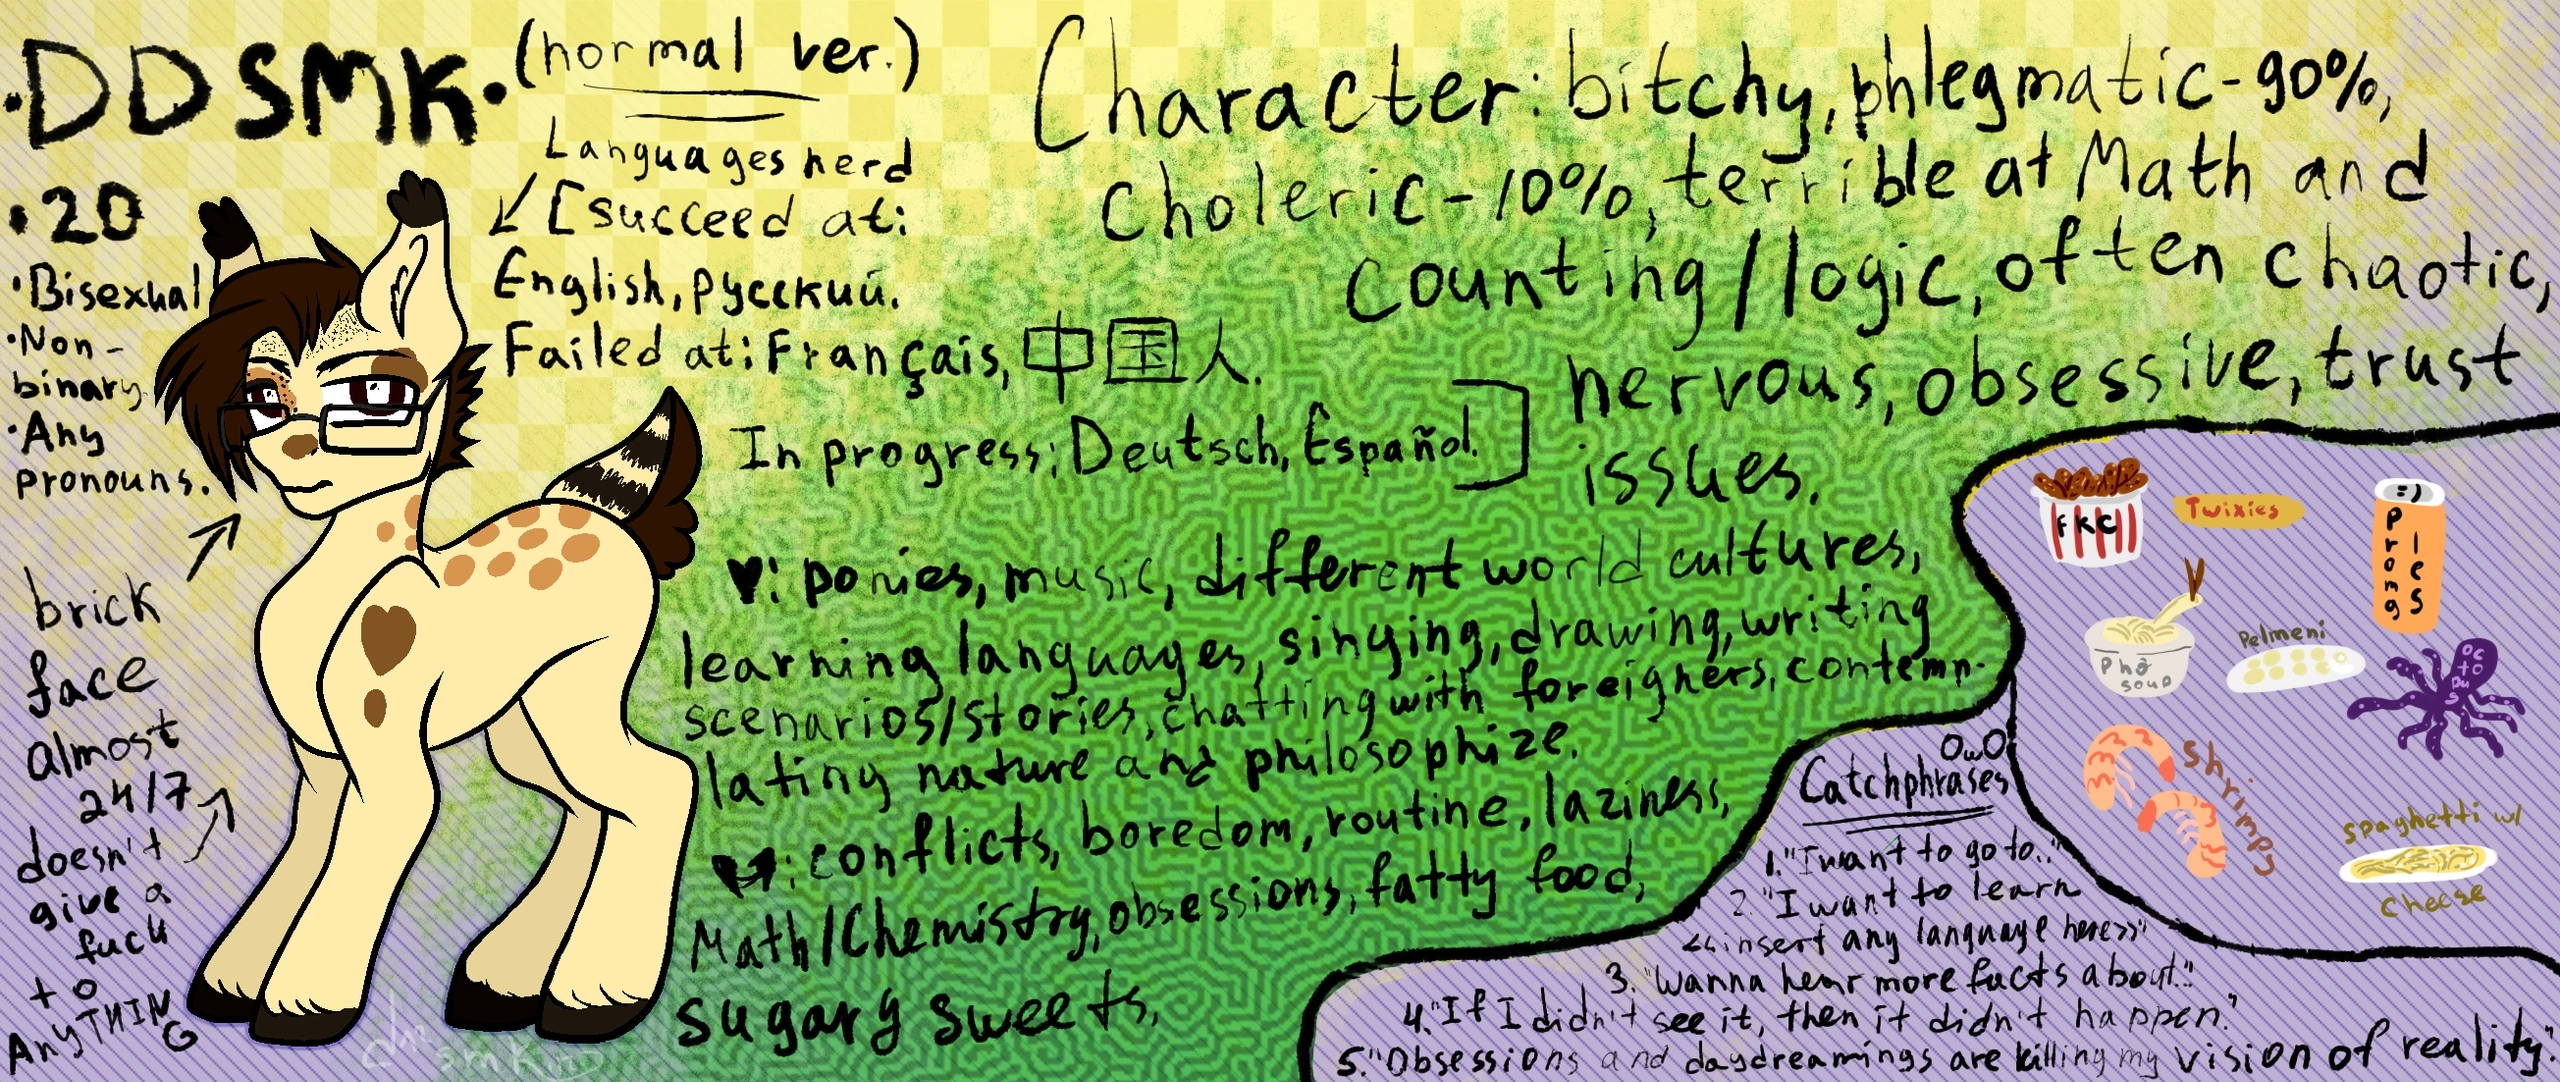 ·DDSMK·
(normal ver.)
·20
·Bisexual
·Non-
binary
·Any
pronouns.
brick
face
almost
24/7
doesn't
give a
fuck
to
AnyTHIN
G
Languages nerd
[succeed at:
English, русский.
Failed at: Français, 中国人.
In progress: Deutsch, Español.]
Character: bitchy, phlegmatic-90%,
choleric-10%, terrible at Math and
counting/logic, often chaotic,
nervous, obsessive, trust
issues.
♥: ponies, music, different world cultures,
learning languages, singing, drawing, writing
scenarios/stories, chatting with foreigners, contemp-
lating nature and philosophize.
: conflicts, boredom, routine, laziness,
Math/Chemistry, obsessions, fatty food,
sugary sweets,
FKC
Twixies
:)
Prong
les
Phở
soup
Pelmeni
oc
to
pu
s
Shrimps
spaghetti w/
cheese
OwO
Catchphrases
1."I want to go to.."
2. "I want to learn
<<insert any language here>>"
3. "Wanna hear more facts about.."
4."If I didn't see it, then it didn't happen."
5."Obsessions and daydreamings are killing my vision of reality."